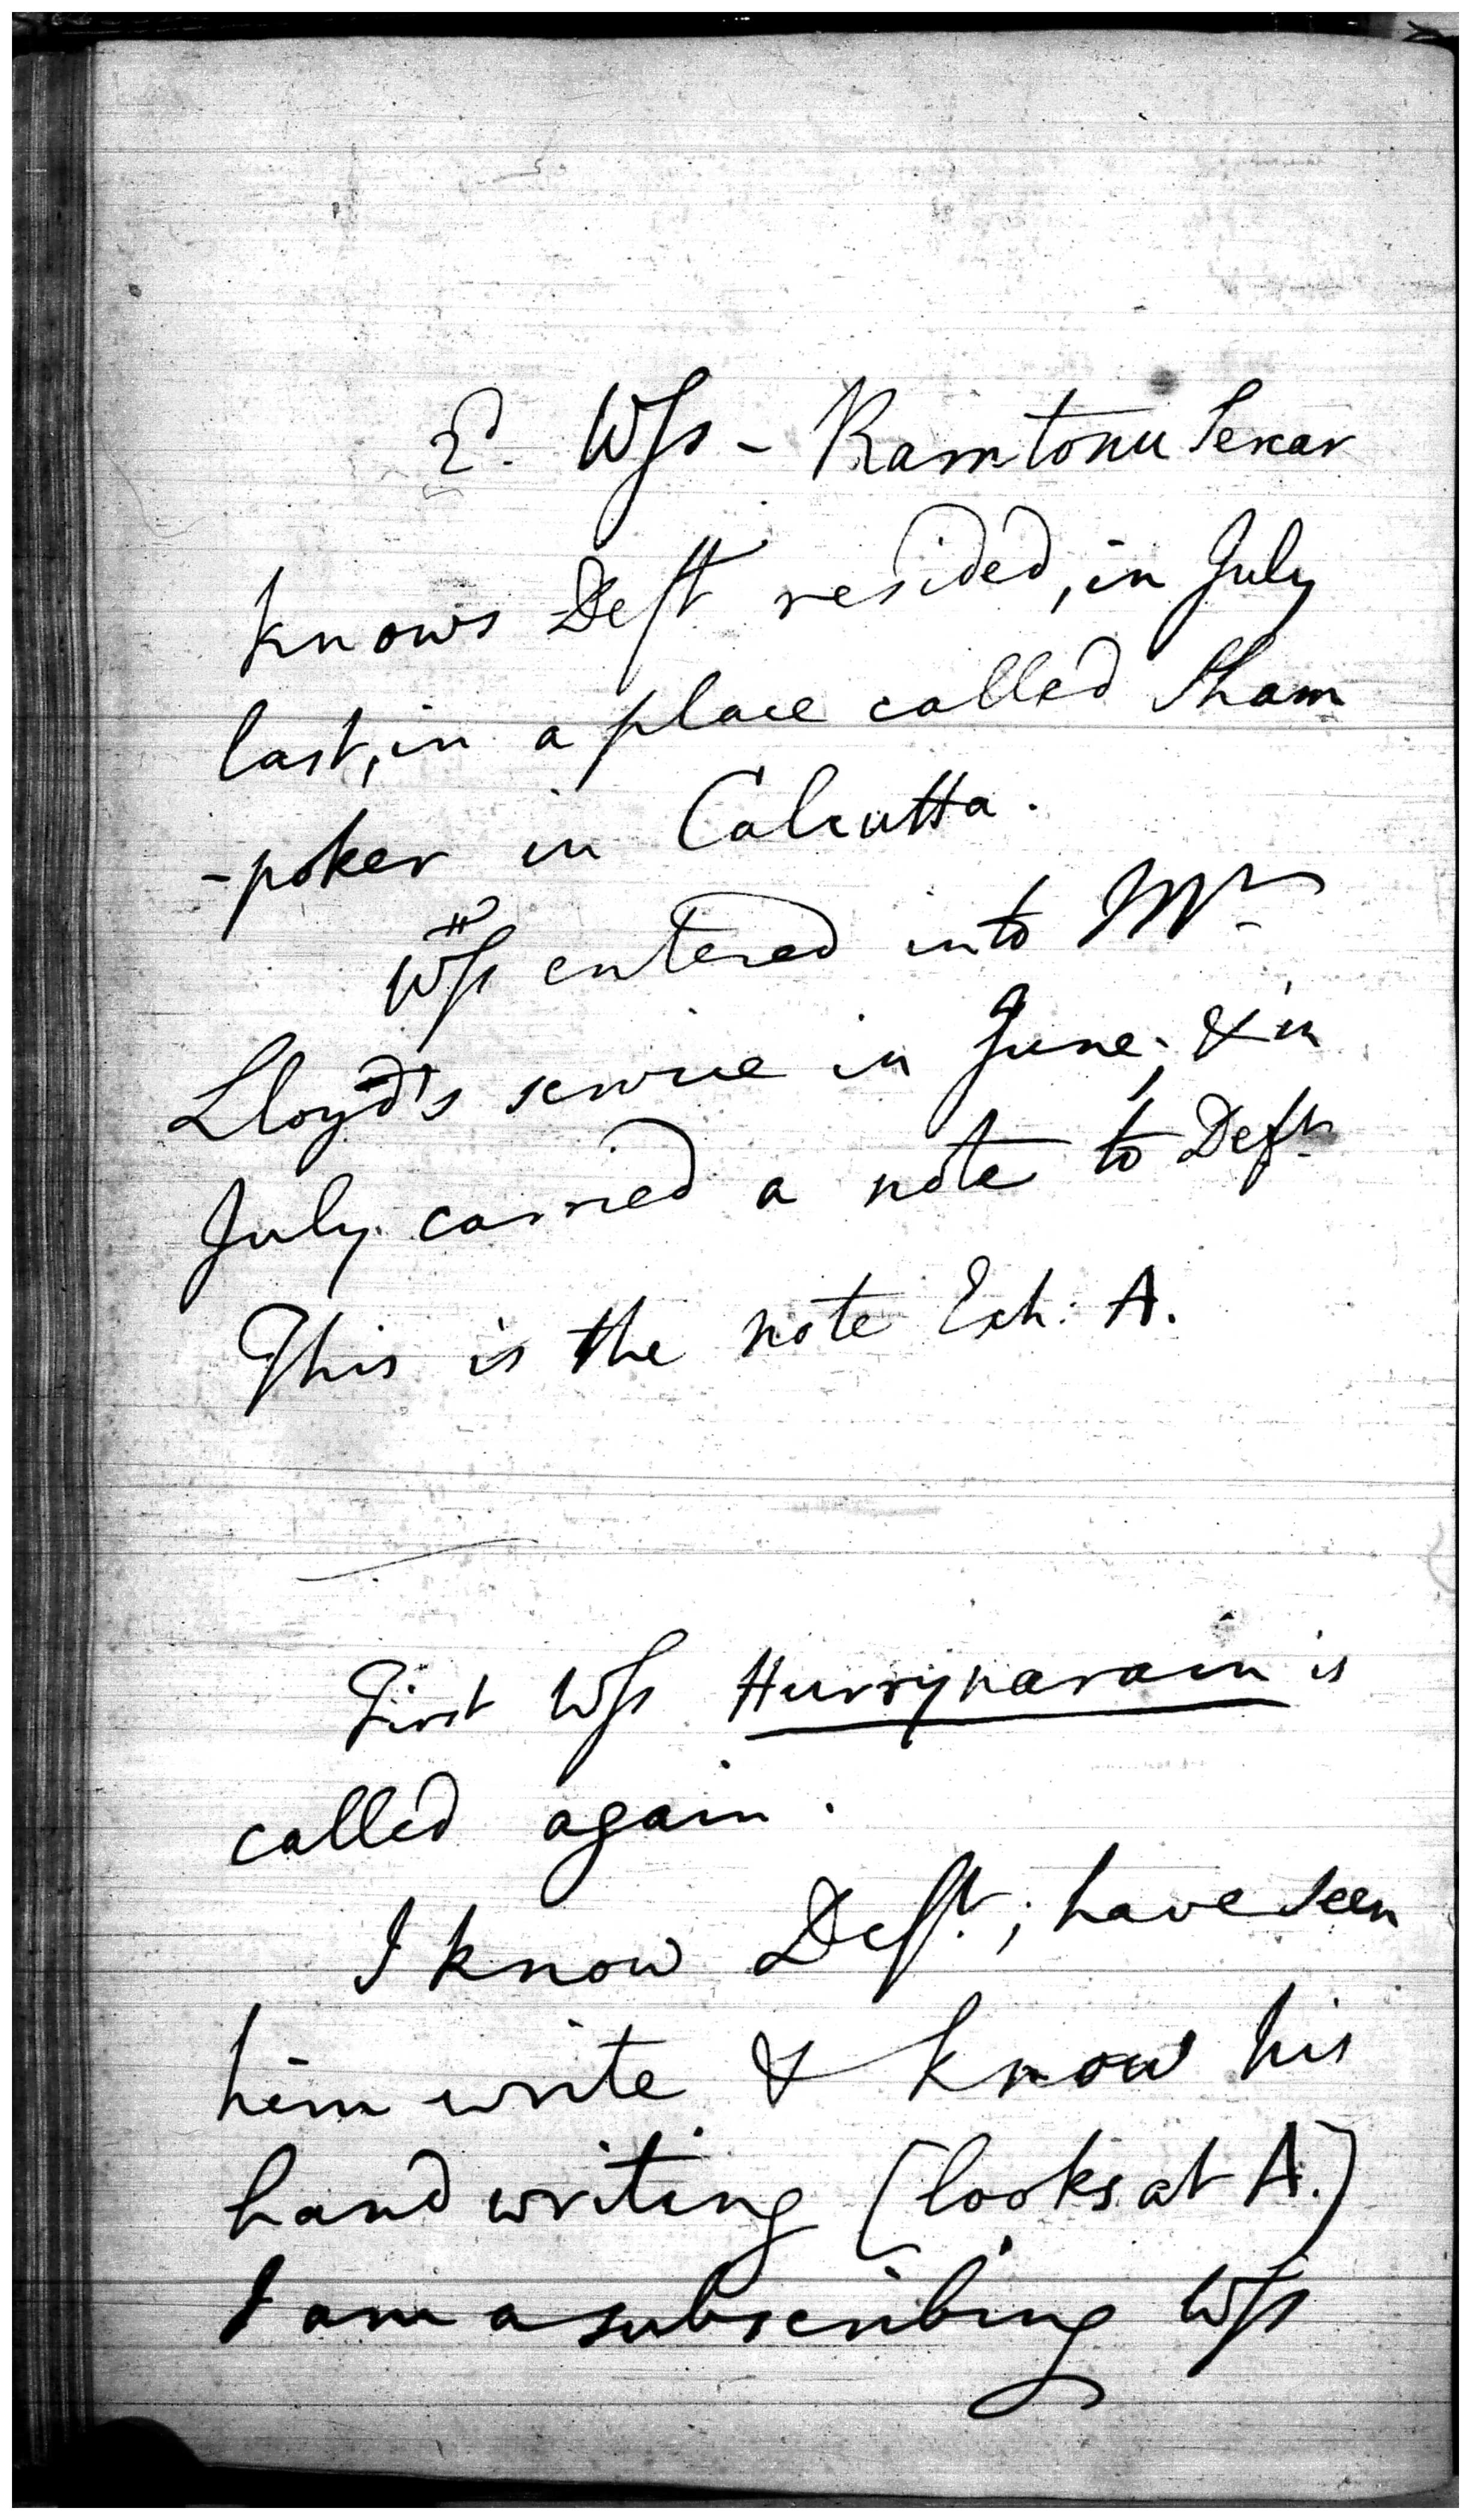 2d. Wss - Ramtonu Sekar
knows Deft resided, in July
last, in a place called Sham
-poker in Calcutta.
Wss entered into Mr
Lloyd's service in June; & in
July carried a note to Deft.
This is the note Exh: A.
First Wss Hurrynarain is
called again.
I know Deft.; have seen
him write & know his
hand writing (looks at A.)
I am a subscribing Wss